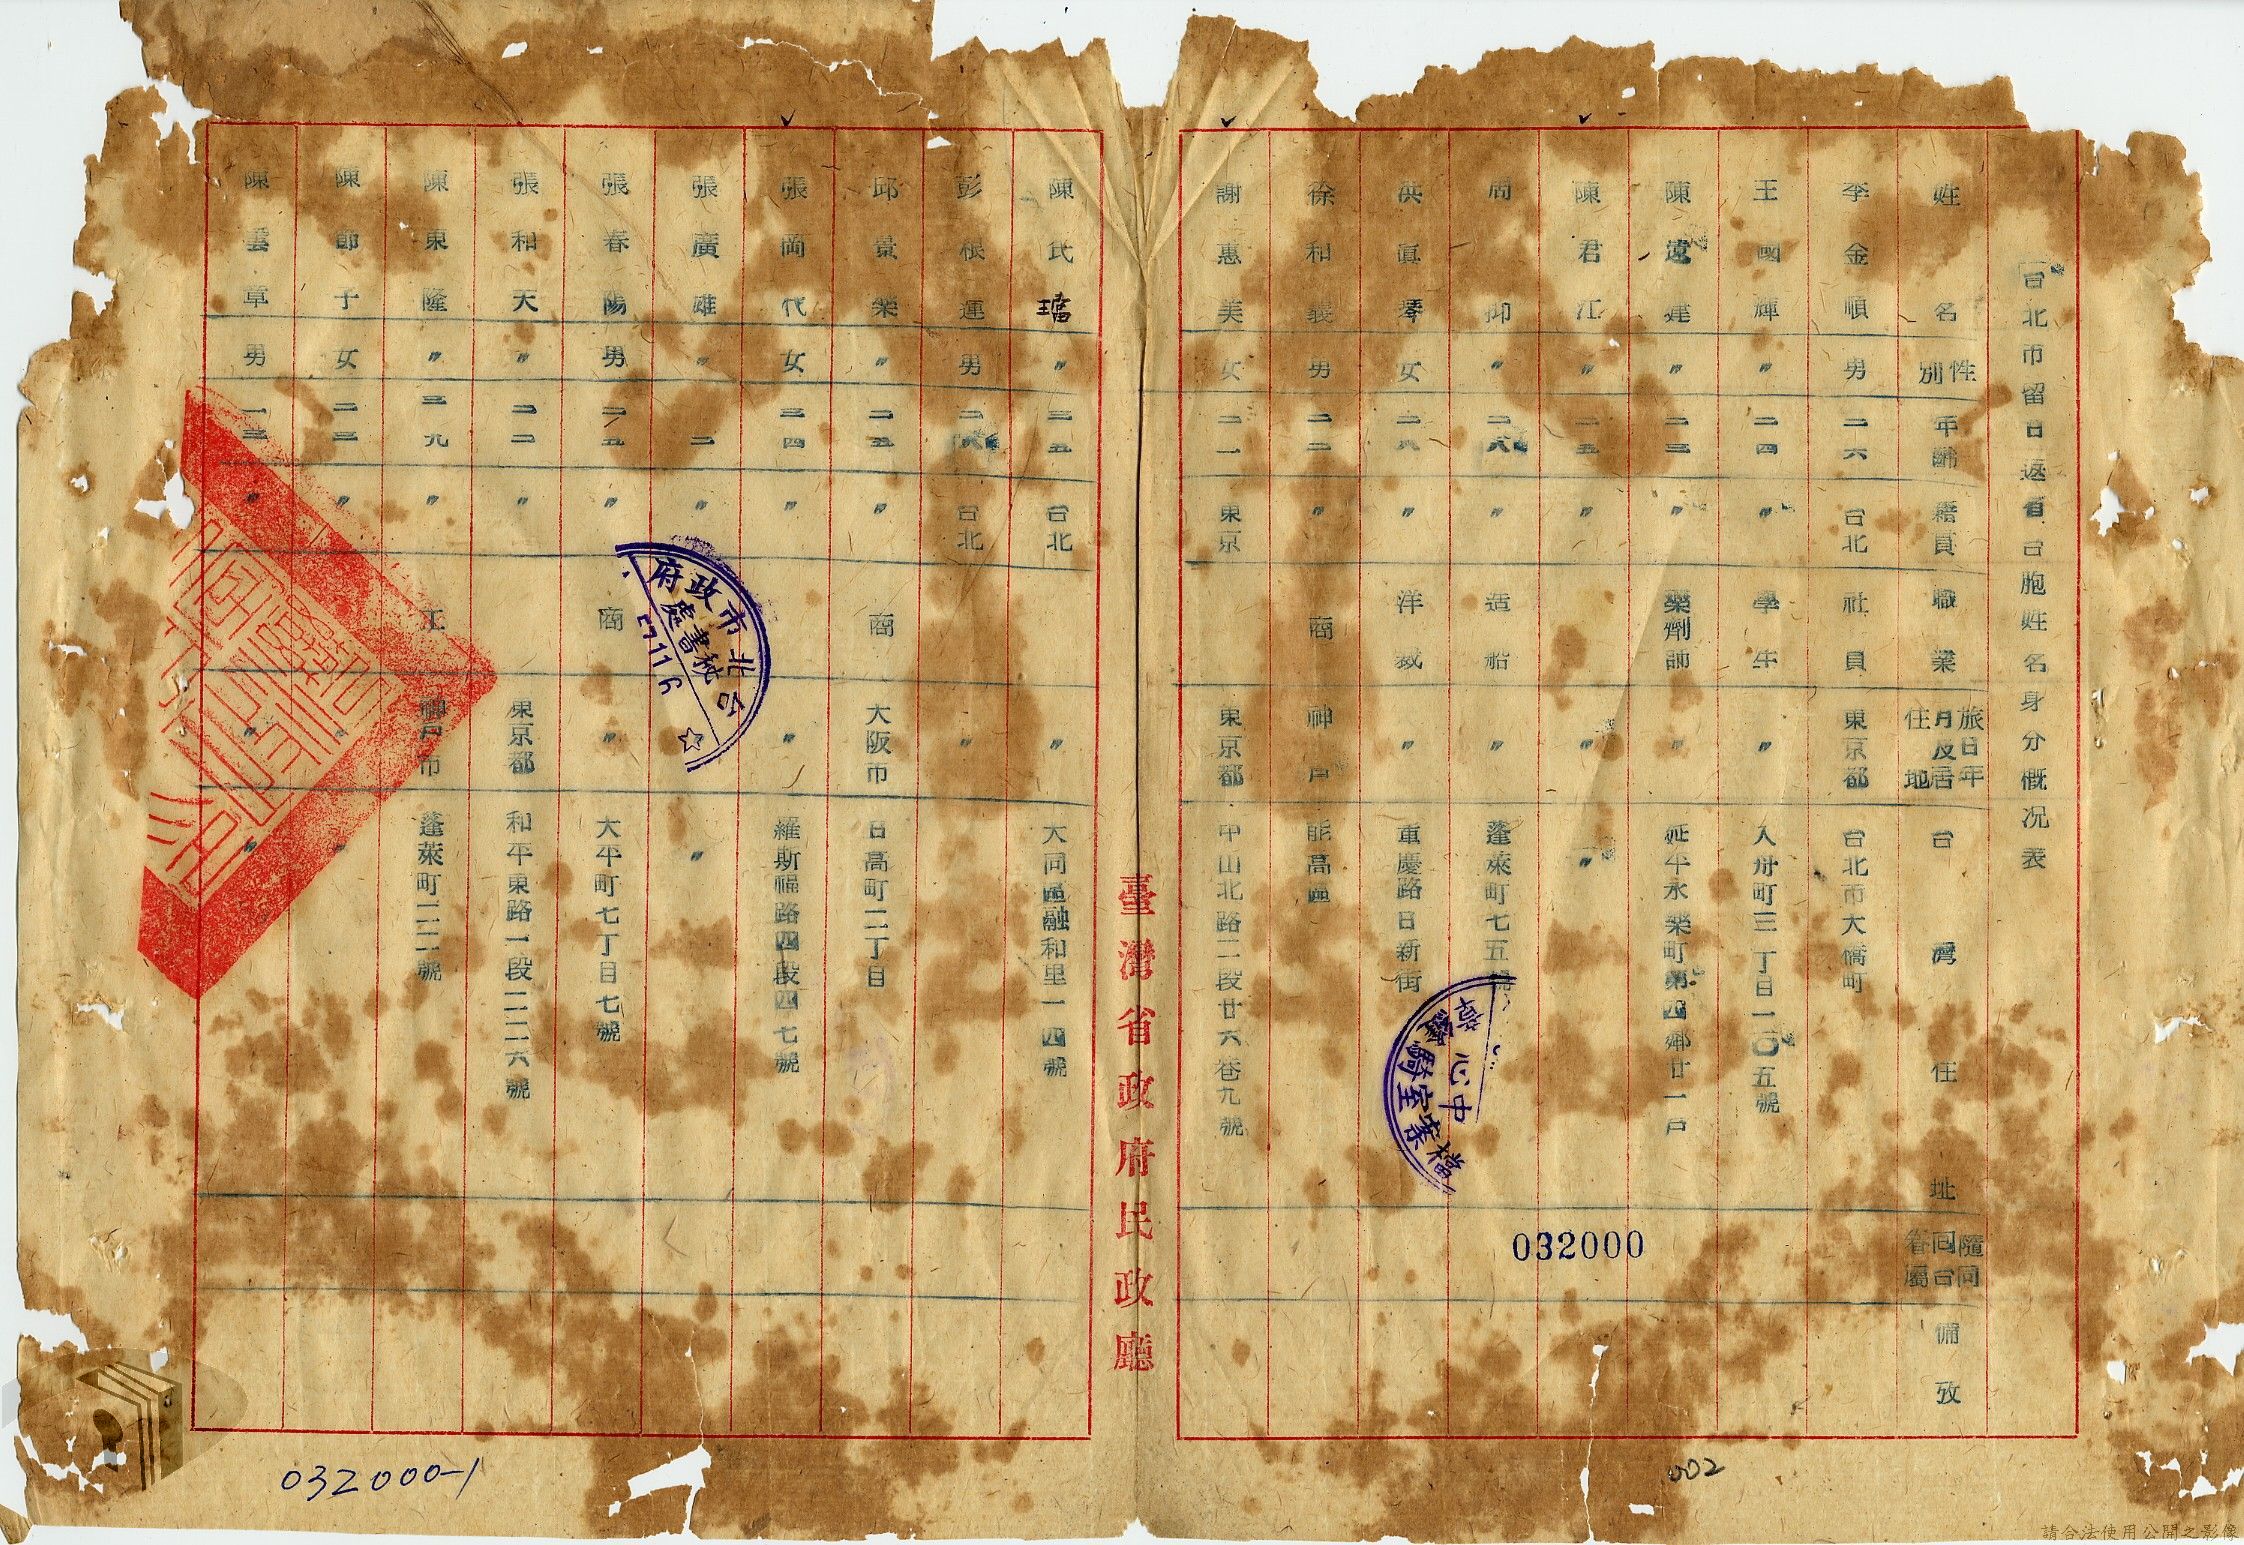 台北市留日返省台胞姓名身分概況表
姓名 性別 年齡 籍貫 職業 旅日年月及居住地 台灣住址 隨同回台眷屬 備攷
李金順 男 二六 台北 社員 東京都 台北市大橋町
王國輝 〃 二四 〃 學生 〃 入舟町三丁目一〇五號
陳遠建 〃 二三 〃 藥劑師 〃 延平永樂町第四鄰廿一戶
陳君江 〃 二五 〃 〃 〃
周抑 〃 二八 〃 造船 蓬萊町七五號
洪眞琴 女 二八 〃 洋裁 〃 重慶路日新街
徐和義 男 二二 〃 商 神戶 能高區
謝惠美 女 二一 東京 東京都 中山北路二段廿六巷九號
臺灣省政府民政廳
陳氏璿 〃 三五 台北 〃 大同區融和里一四號
彭根運 男 二六 台北 〃
邱景樂 〃 二五 〃 商 大阪市 日高町二丁目
張岡代 女 三四 〃 〃 羅斯福路四段四七號
張廣雄 〃 二 〃 〃
張春陽 男 二五 〃 商 〃 太平町七丁目七號
張和天 〃 二二 〃 東京都 和平東路一段二二六號
陳東隆 〃 三九 〃 工 神戶市 蓬萊町二二號
陳節子 女 二三 〃 〃
陳雲章 男 一三 〃 〃 〃
台北市政府
秘書處
檔案室騎縫章
中心
032000
032000-1
002
請合法使用公開之影像